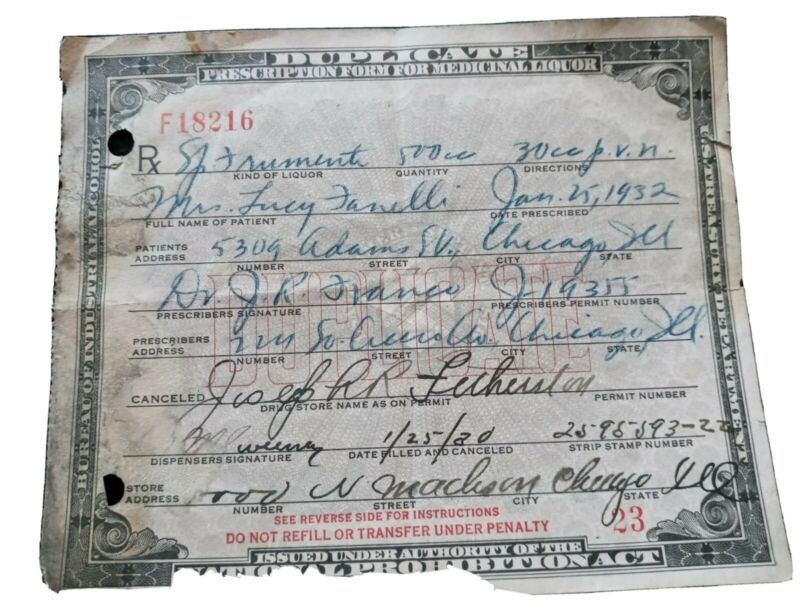 DUPLICATE
PRESCRIPTION FORM FOR MEDICINAL LIQUOR
F18216
Rx Sp Frumenti 500cc 30cc p.r.n.
KIND OF LIQUOR QUANTITY DIRECTIONS
Mrs. Lucy Fanelli Jan. 25, 1932
FULL NAME OF PATIENT DATE PRESCRIBED
5309 Adams St., Chicago, Ill
PATIENTS ADDRESS NUMBER STREET CITY STATE
Dr. J. R. Franco J-19355
PRESCRIBERS SIGNATURE PRESCRIBERS PERMIT NUMBER
So. Cicero Av. Chicago, Ill.
PRESCRIBERS ADDRESS NUMBER STREET CITY STATE
DUPLICATE
CANCELED Joseph R
DRUG STORE NAME AS ON PERMIT PERMIT NUMBER
1/25/30 2595593-22
DISPENSERS SIGNATURE DATE FILLED AND CANCELED STRIP STAMP NUMBER
W Madison Chicago Ill
STORE ADDRESS NUMBER STREET CITY STATE
SEE REVERSE SIDE FOR INSTRUCTIONS
DO NOT REFILL OR TRANSFER UNDER PENALTY
23
ISSUED UNDER AUTHORITY OF THE
NATIONAL PROHIBITION ACT
BUREAU OF INDUSTRIAL ALCOHOL